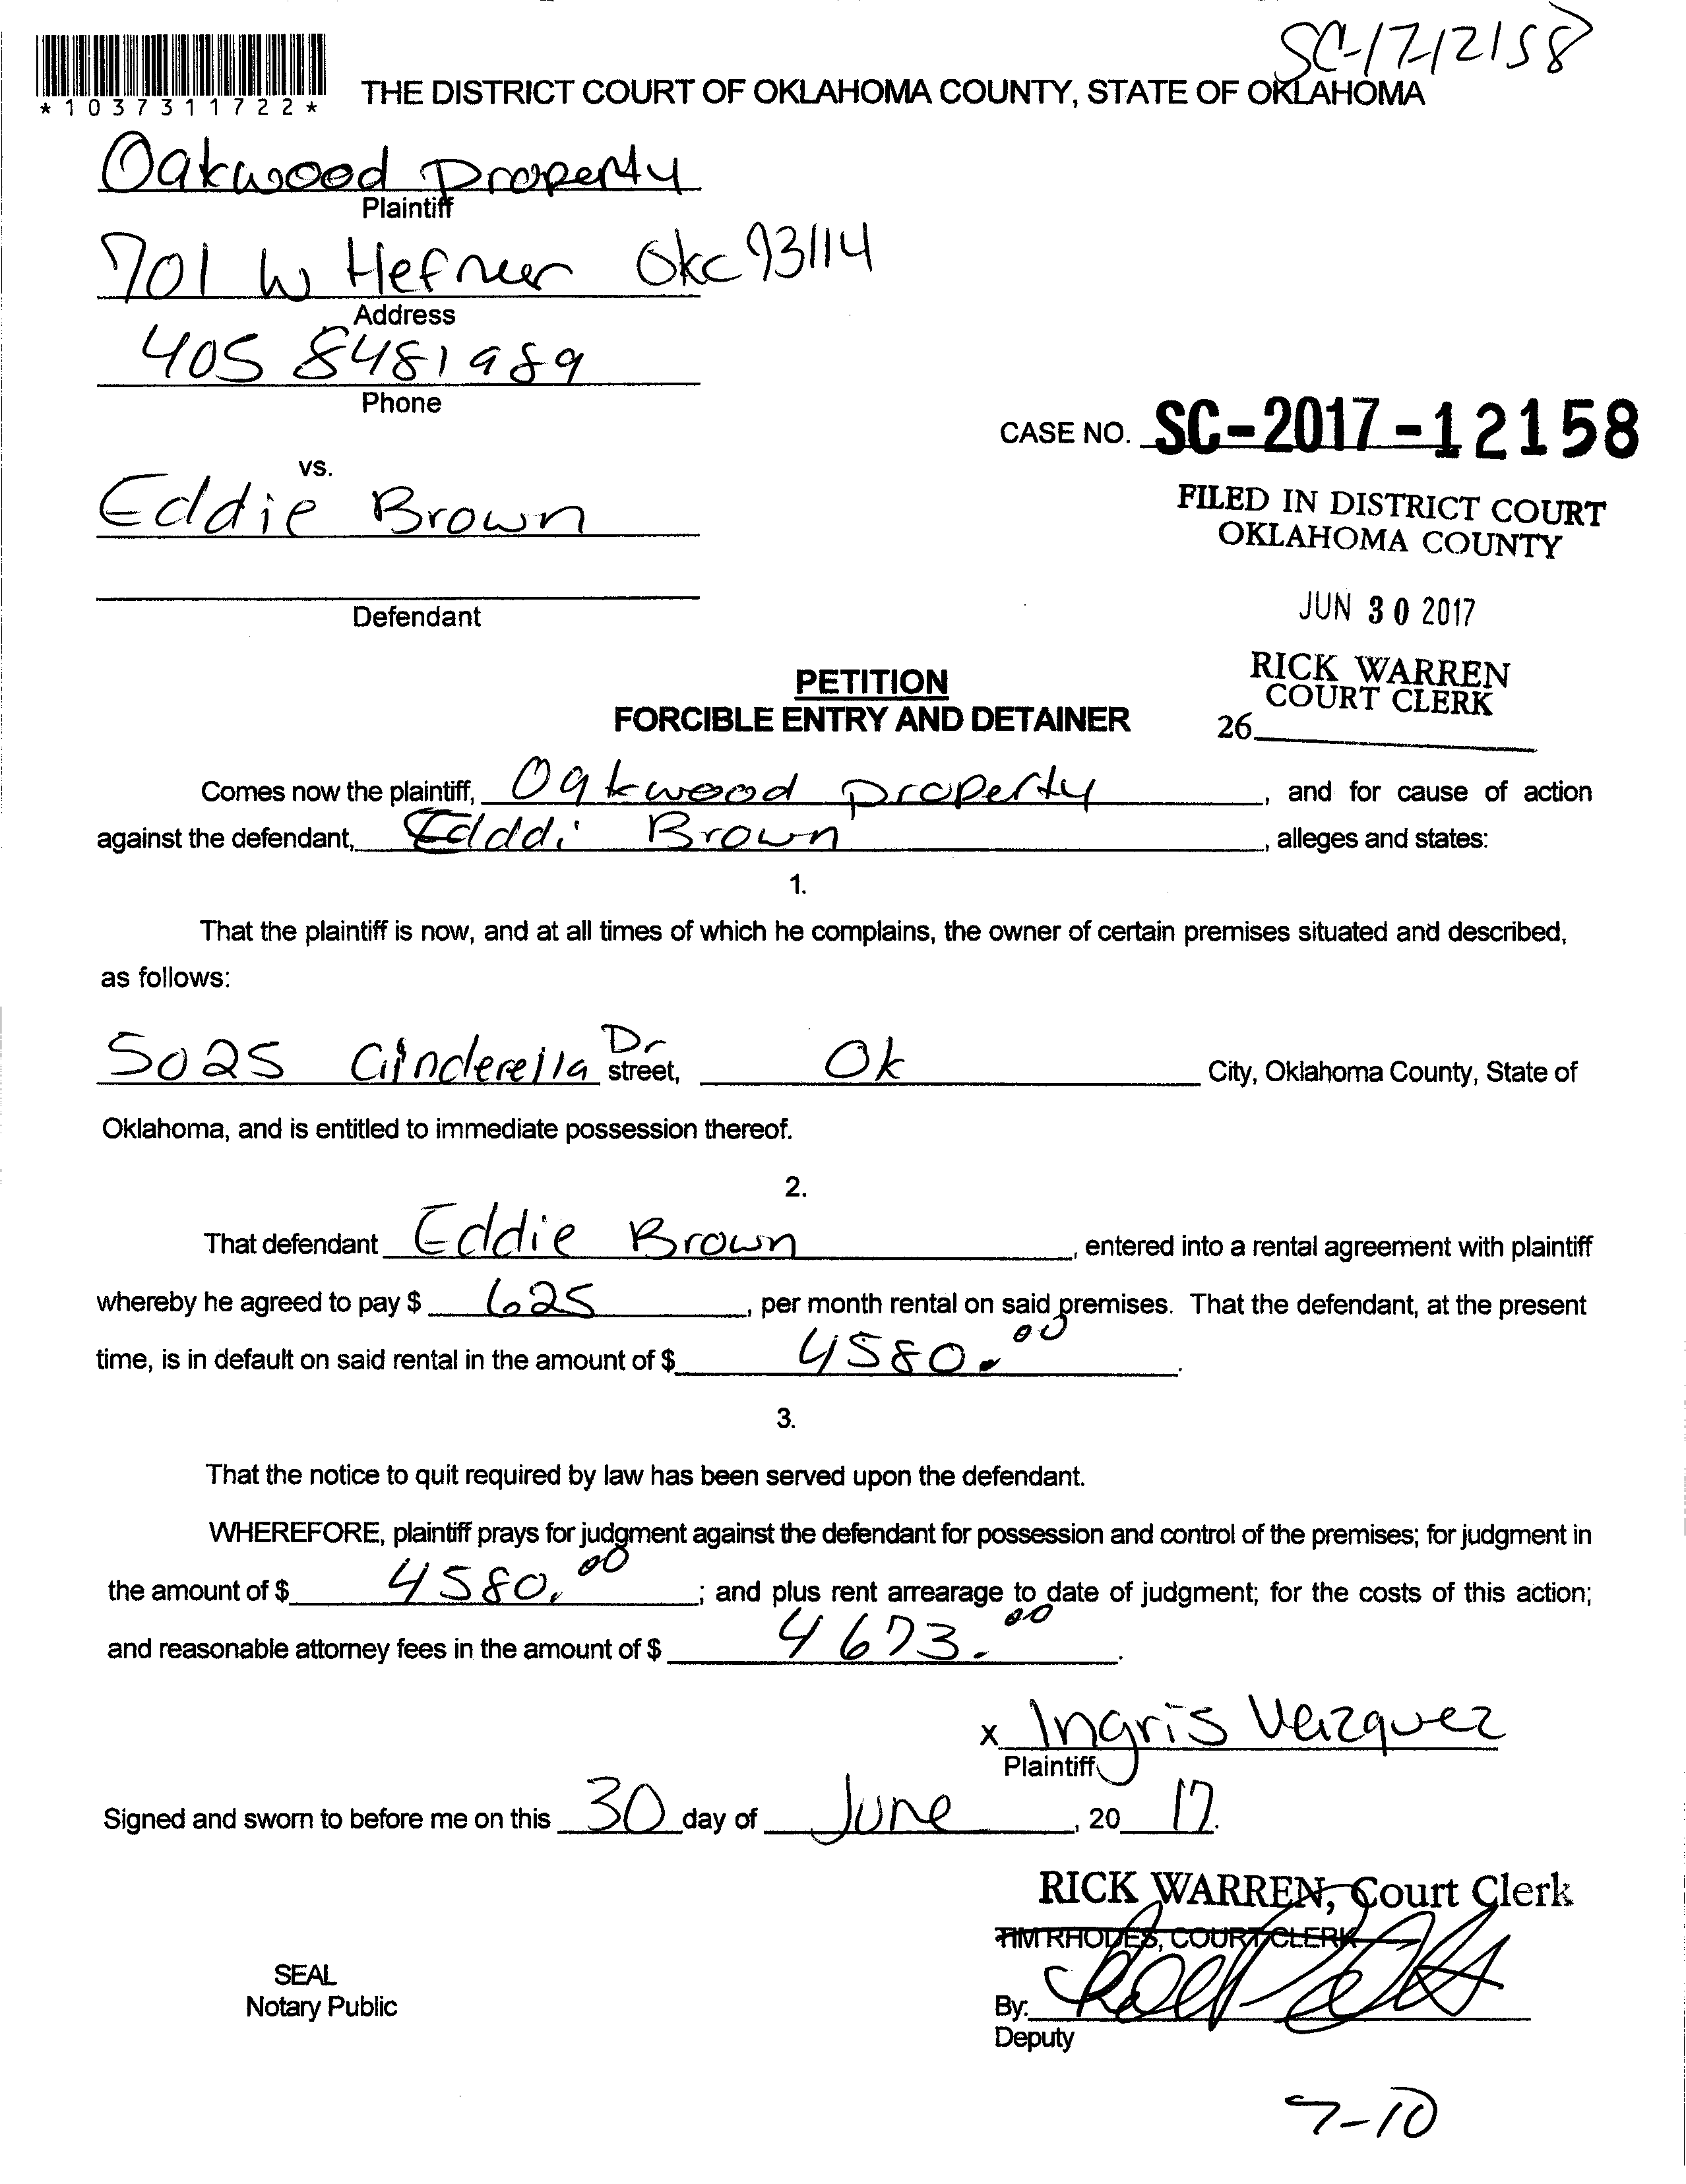 SC-17-12158
*1037311722*
THE DISTRICT COURT OF OKLAHOMA COUNTY, STATE OF OKLAHOMA
Oakwood Property
Plaintiff
701 W Hefner Okc 73114
Address
405 8481989
Phone
CASE NO. SC-2017-12158
vs.
Eddie Brown
FILED IN DISTRICT COURT
OKLAHOMA COUNTY
Defendant
JUN 30 2017
RICK WARREN
COURT CLERK
26
PETITION
FORCIBLE ENTRY AND DETAINER
Comes now the plaintiff, Oakwood property, and for cause of action
against the defendant, Edddi Brown, alleges and states:
1.
That the plaintiff is now, and at all times of which he complains, the owner of certain premises situated and described,
as follows:
5025 Cinderella Dr street, Ok City, Oklahoma County, State of
Oklahoma, and is entitled to immediate possession thereof.
2.
That defendant Eddie Brown, entered into a rental agreement with plaintiff
whereby he agreed to pay $ 625, per month rental on said premises. That the defendant, at the present
time, is in default on said rental in the amount of $ 4580.00.
3.
That the notice to quit required by law has been served upon the defendant.
WHEREFORE, plaintiff prays for judgment against the defendant for possession and control of the premises; for judgment in
the amount of $ 4580.00; and plus rent arrearage to date of judgment; for the costs of this action;
and reasonable attorney fees in the amount of $ 4673.00.
x Ingris Vazquez
Plaintiff
Signed and sworn to before me on this 30 day of June, 2017.
RICK WARREN, Court Clerk
TIM RHODES, COURT CLERK
SEAL
Notary Public
By:
Deputy
7-10